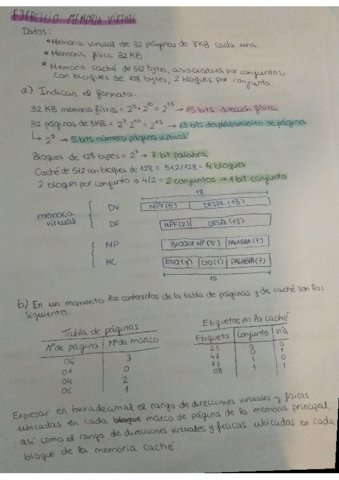 EJERCICIO MEMORIA VIRTUAL
Datos:
* Memoria virtual de 32 páginas de 8KB cada una
* Memoria física 32 KB
* Memoria caché de 512 bytes, asociativa por conjuntos,
con bloques de 128 bytes, 2 bloques por conjunto.
a) Indicar el formato.
32 KB memoria física = 2⁵ · 2¹⁰ = 2¹⁵ → 15 bits dirección física
32 páginas de 8KB = 2³ 2¹⁰ = 2¹³ → 13 bits desplazamiento de página
↳ 2⁵ → 5 bits número página virtual
Bloques de 128 bytes = 2⁷ → 7 bit palabra
Caché de 512 con bloques de 128 = 512/128 = 4 bloques
2 bloques por conjunto → 4/2 = 2 conjuntos → 1 bit conjunto
18
memoria virtual { DV NPV(5) DESPL (13)
DF NPF(2) DESPL (13)
{ MP BLOQUE Nº(8) PALABRA(7)
MC ETQ(7) CJTO(1) PALABRA(7)
15
b) En un momento los contenidos de la tabla de páginas y de caché son los
siguientes:
Tabla de páginas
Nº de página Nº de marco
06 3
01 0
04 2
0C 1
Etiquetas en la caché
Etiqueta Conjunto Vía
0 0
0 1
1 0
08 1 1
Expresar en hexadecimal el rango de direcciones virtuales y físicas
ubicadas en cada marco de página de la memoria principal,
así como el rango de direcciones virtuales y físicas ubicadas en cada
bloque de la memoria caché